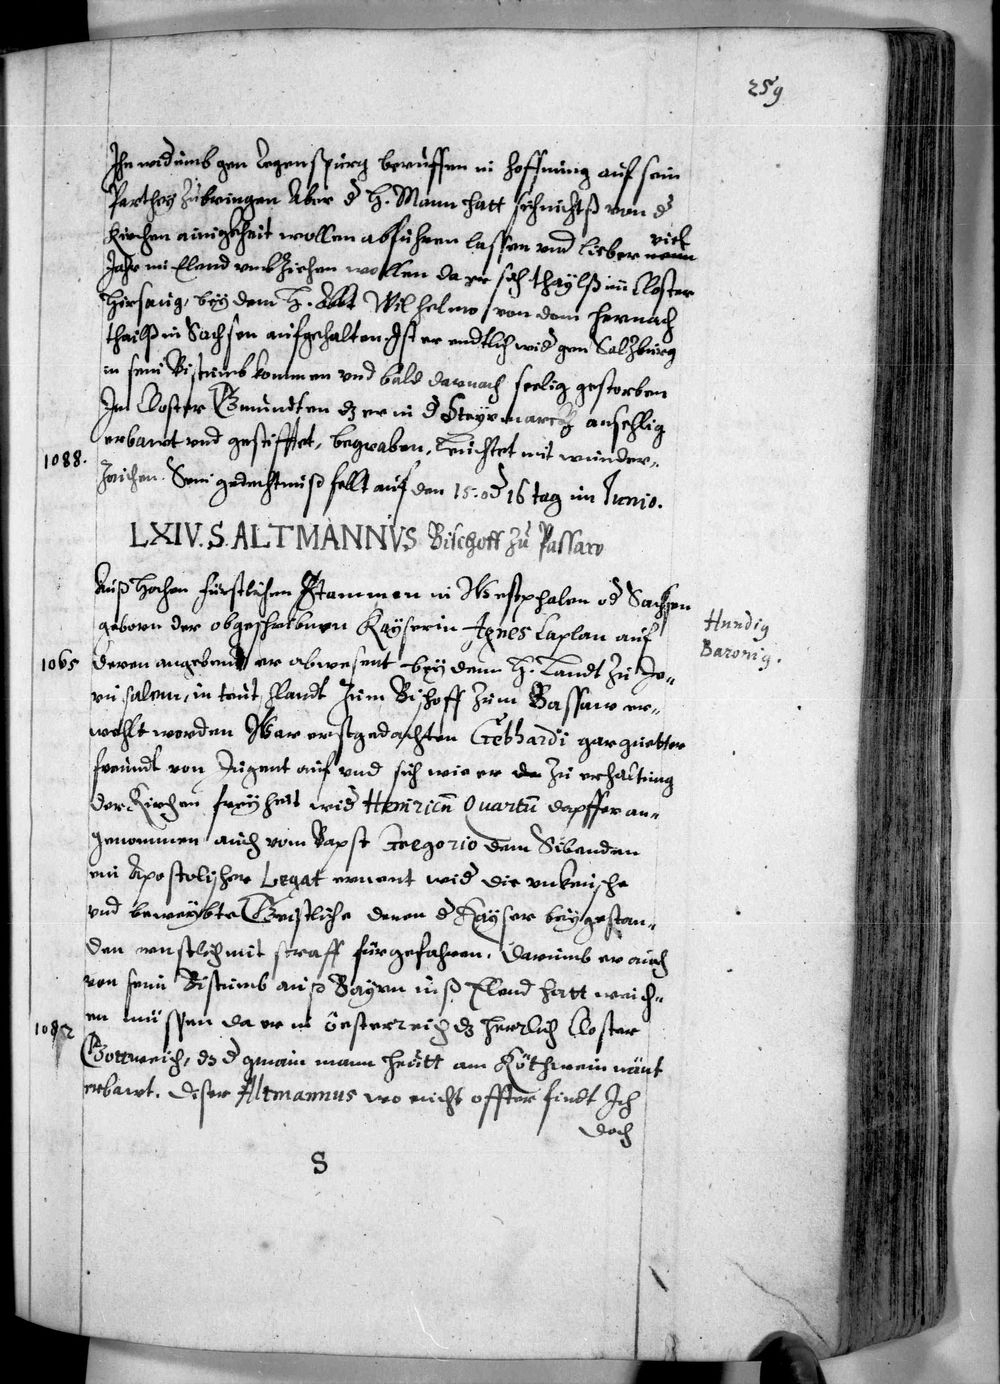 259
Ihn widumb gen Regenspurg beruffen in hoffnung auf sein
Parthey zubringen Aber d H. Mann hatt sich nichtß von d
Kirchen ainigkheit wollen abführen lassen vnd lieber viel
Jahr im Elend vmbziehen wollen da er sich thaylß im Closter
Hirsaug, bey dem H. Abbt Wilhelmo, von dem hernach
theilß in Sachsen aufgehalten. Ist er endtlich wid gen Saltzburg
in sein Bistumb kommen vnd bald darnach seelig gestorben
Im Closter Gmundten dz er in d Steyrmarckh ansehlig
erbawt vnd gestifftet, begraben, Leuchtet mit wunder-
1088.
Zeichen. Sein gedechtnuß fellt auf den 15. od 16 tag im Junio.
LXIV. S. ALTMANNVS Bischoff zu Passaw
Auß Hochen fürstlichen Stammen in Westphalen od Sachsen
geborn der obgeschribnen Kayserin Agnes Caplan auf
Hundig
Baronig.
1065
deren angebend er abwesent bey dem H. Landt zu Je-
rusalem, in teutschlandt zum Bischoff zum Passaw er-
wehlt worden War erstgedachten Gebhardi gar guetter
freundt von Jugent auf vnd sich wie er zu erhaltung
der Kirchen freyheit wid Henricum Quartum dapffer an-
genommen auch vom Bapst Gregorio dem Sibenden
ein Apostolischer Legat ernent wid die vnkeusche
vnd beweybte Geistliche denen d Kayser beygestan-
den ernstlich mit straff fürgefahren. Darumb er auch
von sein Bistumb auß Bayrn inß Elend hatt weich-
1082
en müssen da er in Öesterreich dz herrlich Closter
Gottweich, dz d gmain mann heütt am Köthwein nänt
erbawt. Diser Altmannus wo nicht öffter findt Ich
doch
S